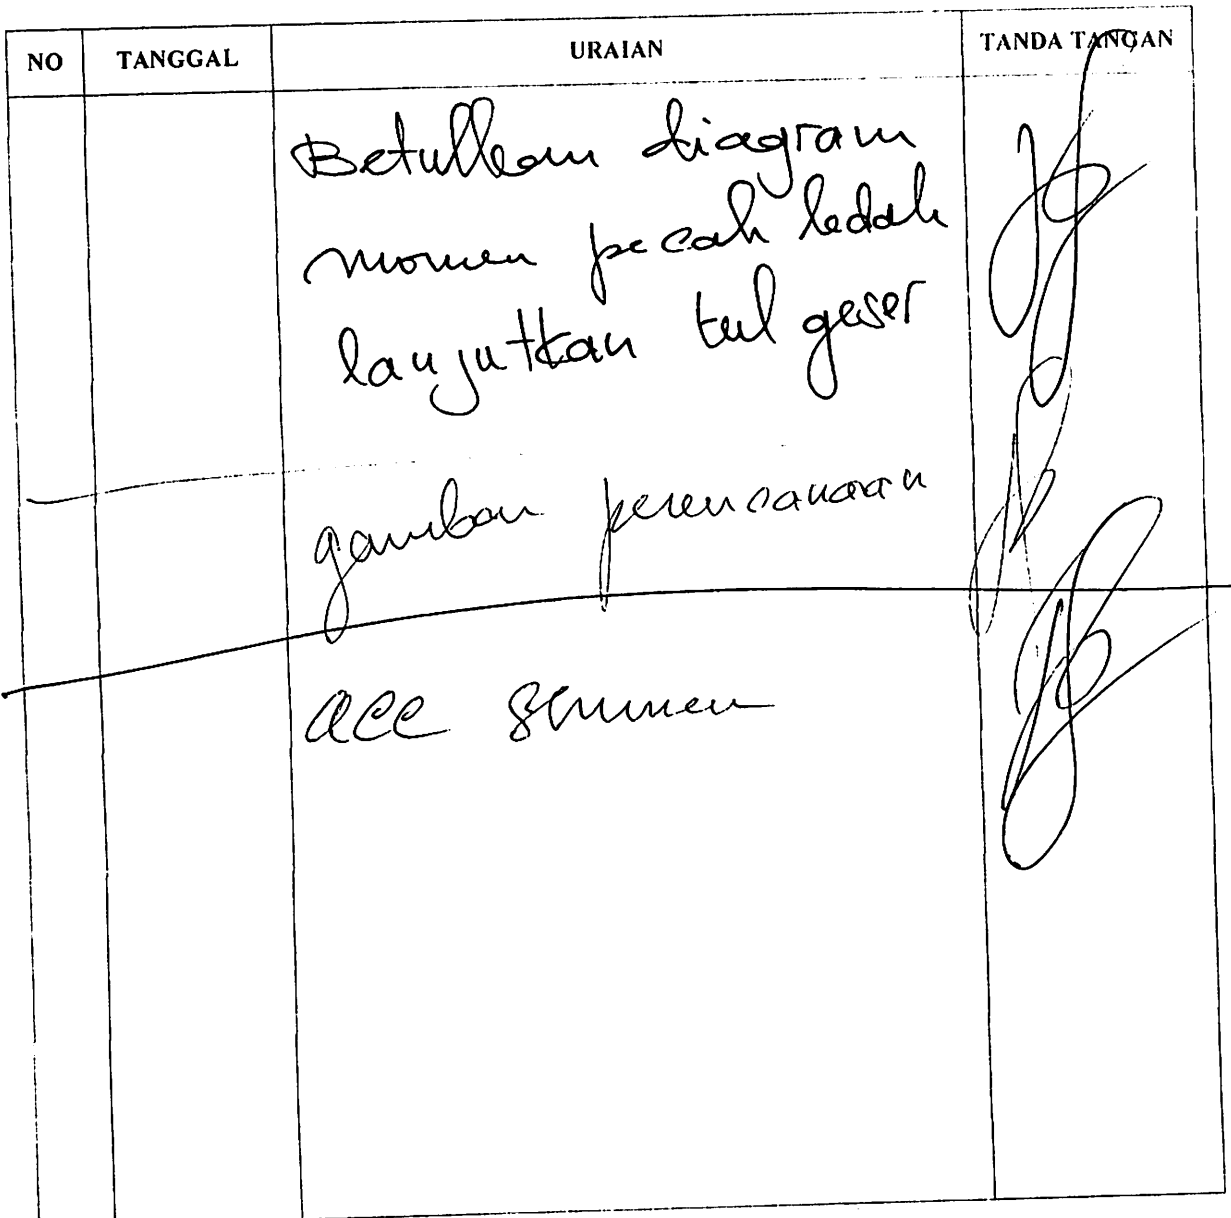 NO TANGGAL URAIAN TANDA TANGAN
Betulkan diagram
momen pecah ledak
lanjutkan tul geser
gambar perencanaan
acc seminar